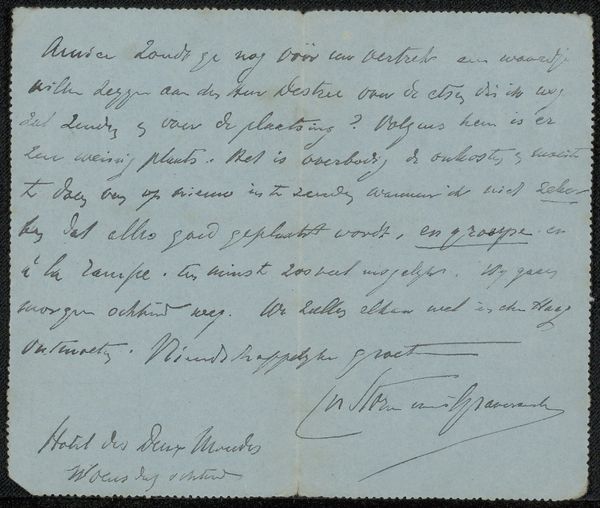 Amice Zoudt ge nog vóór uw vertrek een woordje
willen zeggen aan den Heer Destrée over de etsen die ik nog
zal zenden en over de plaatsing? Volgens hem is er
zeer weinig plaats. Het is overbodig de onkosten en moeite
te doen van op nieuw in te zenden wanneer ik niet zeker
ben dat alles goed geplaatst wordt, en groupe en
à la rampe. ten minst zooveel mogelijk. Wij gaan
morgen ochtend weg. We zullen elkaar wel in den Haag
ontmoeten. Vriendschappelijke groet
C N Storm van 's Gravesande
Hotel des Deux Mondes
Woensdag ochtend